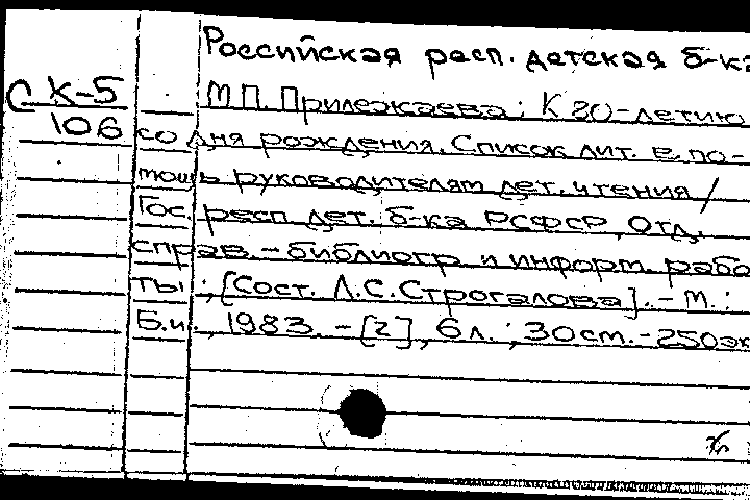 Российская респ. детская б-ка
С К-5
106
М.П. Прилежаева: К 80-летию
со дня рождения. Список лит. в по-
мощь руководителям дет. чтения /
Гос. респ. дет. б-ка РСФСР, Отд.
справ.-библиогр. и информ. рабо
ты; [Сост. Л.С.Строгалова]. - М.:
Б.и., 1983. - [2], 6 л.; 30 см. - 250 эк